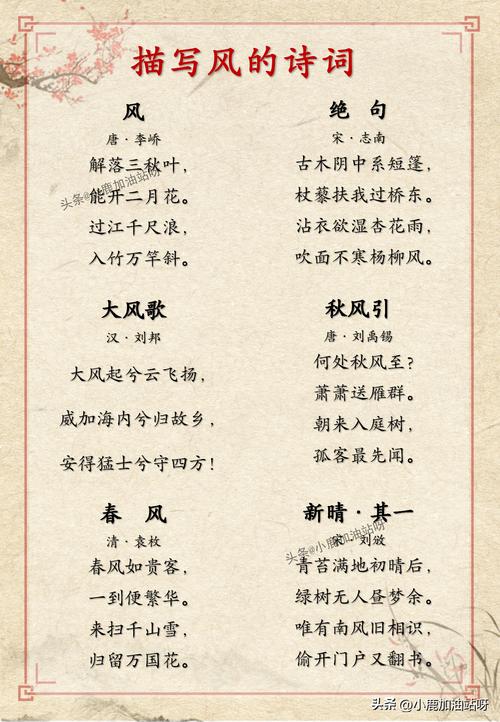 描写风的诗词
风
唐·李峤
解落三秋叶，
能开二月花。
过江千尺浪，
入竹万竿斜。
绝句
宋·志南
古木阴中系短篷，
杖藜扶我过桥东。
沾衣欲湿杏花雨，
吹面不寒杨柳风。
大风歌
汉·刘邦
大风起兮云飞扬，
威加海内兮归故乡，
安得猛士兮守四方！
秋风引
唐·刘禹锡
何处秋风至？
萧萧送雁群。
朝来入庭树，
孤客最先闻。
春风
清·袁枚
春风如贵客，
一到便繁华。
来扫千山雪，
归留万国花。
新晴·其一
宋·刘攽
青苔满地初晴后，
绿树无人昼梦余。
唯有南风旧相识，
偷开门户又翻书。
头条@小鹿加油站呀
头条@小鹿加油站呀
头条@小鹿加油站呀